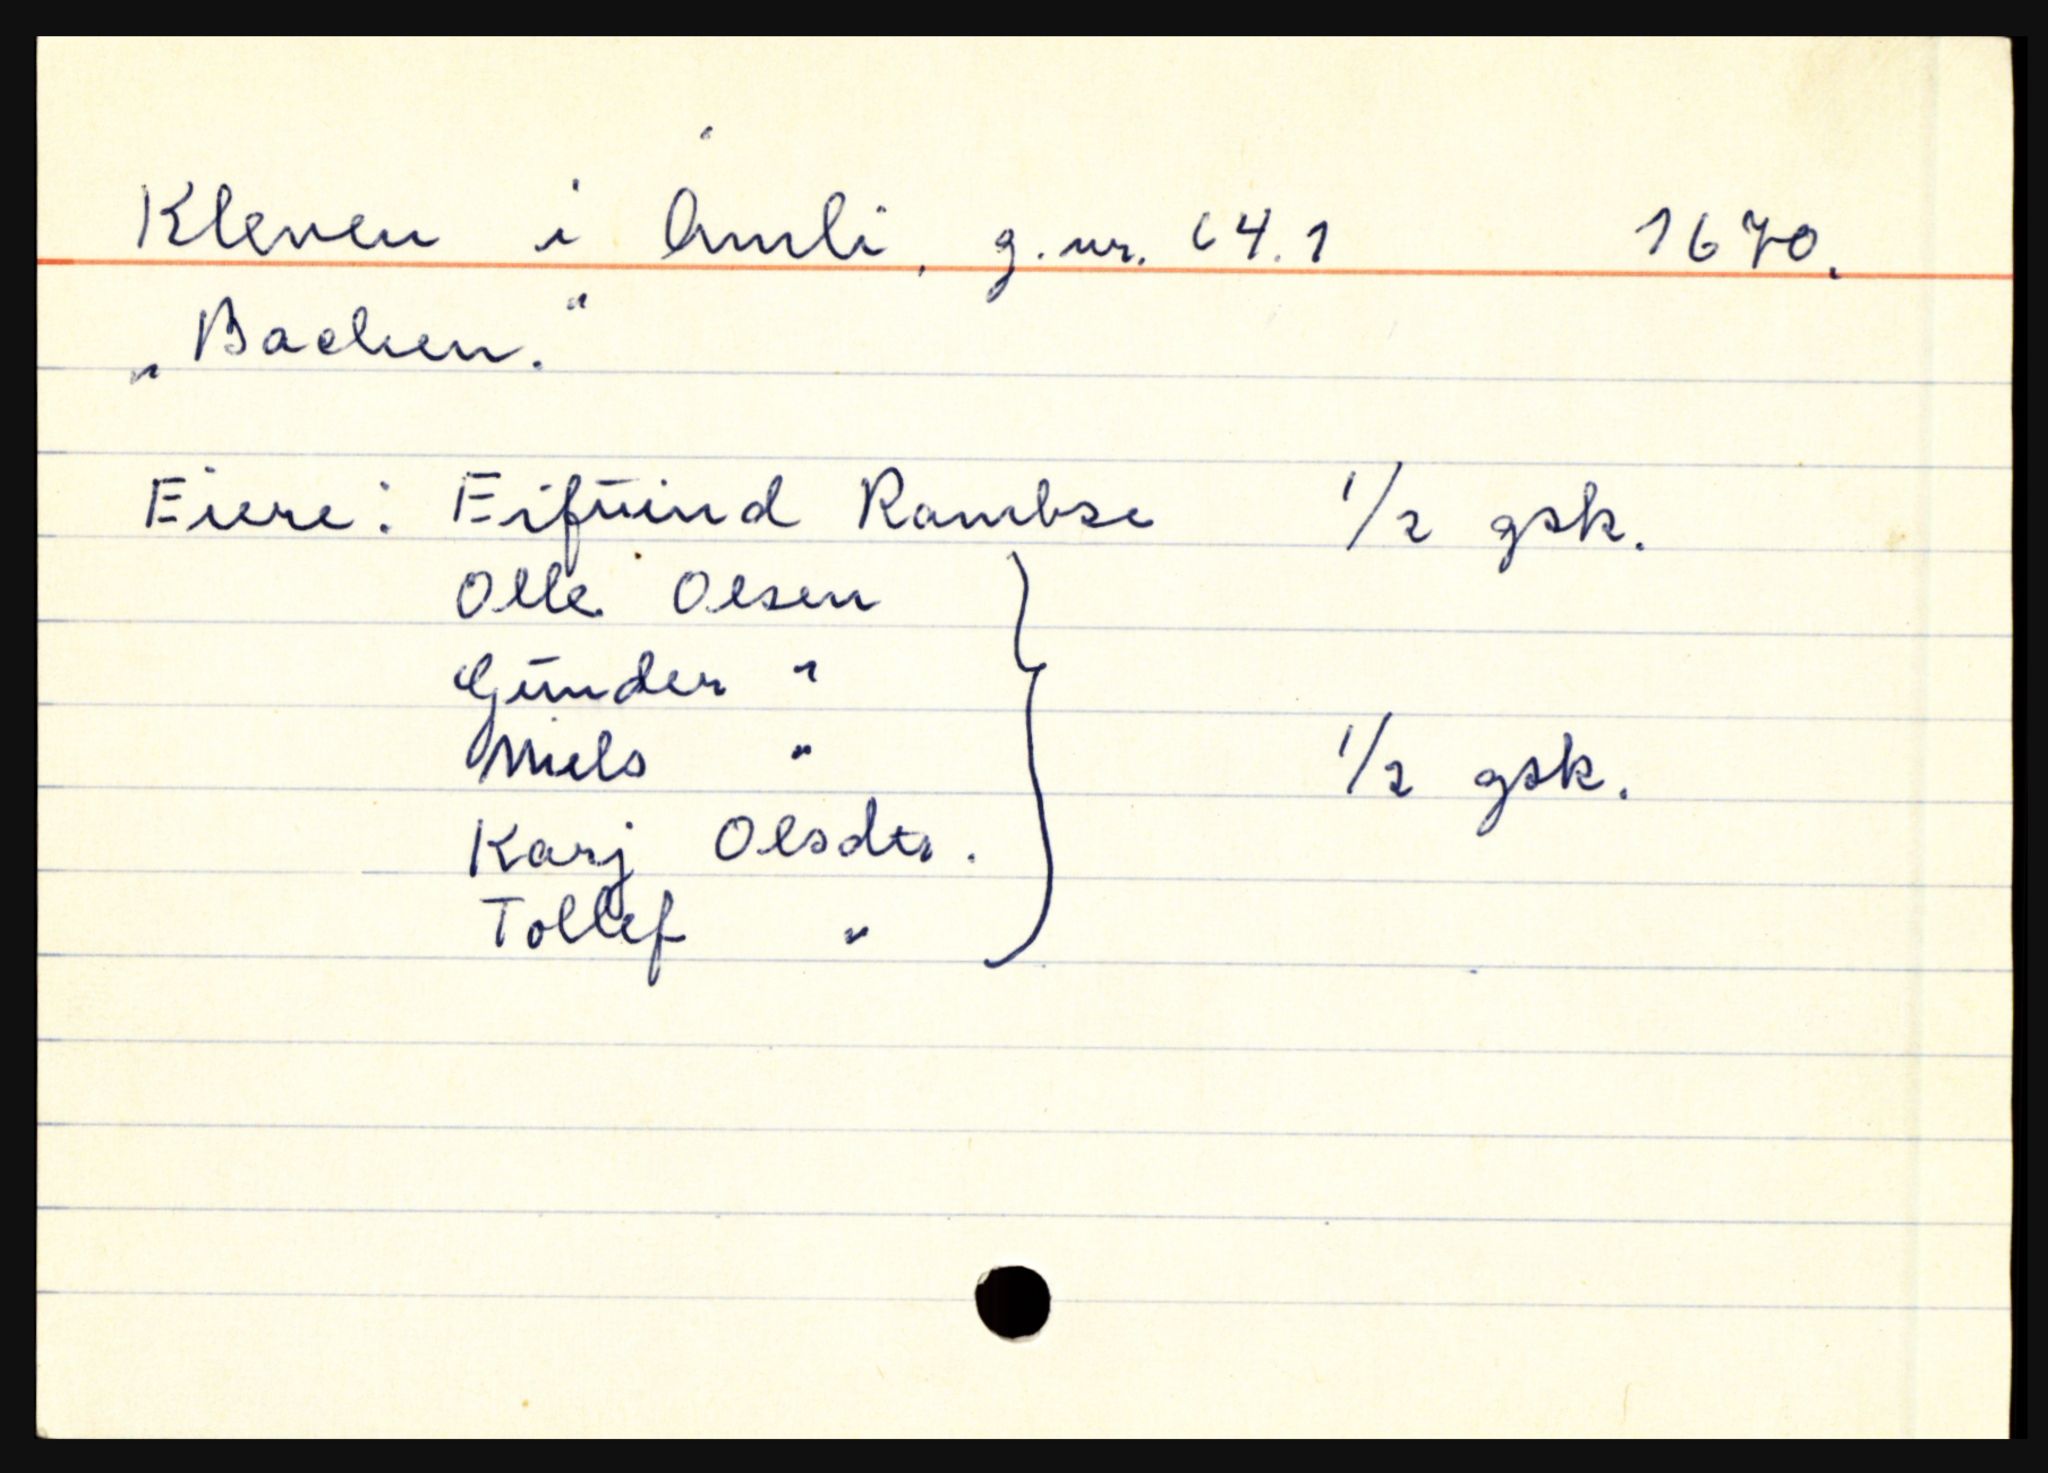 Kleven i Åmli, g.nr. 64.1 1670.
„Backen.“
Eiere: Eifuind Rambse 1/2 gsk.
Olle Olsen
Gunder "
Niels " 1/2 gsk.
Karj Olsdtr.
Tollef "